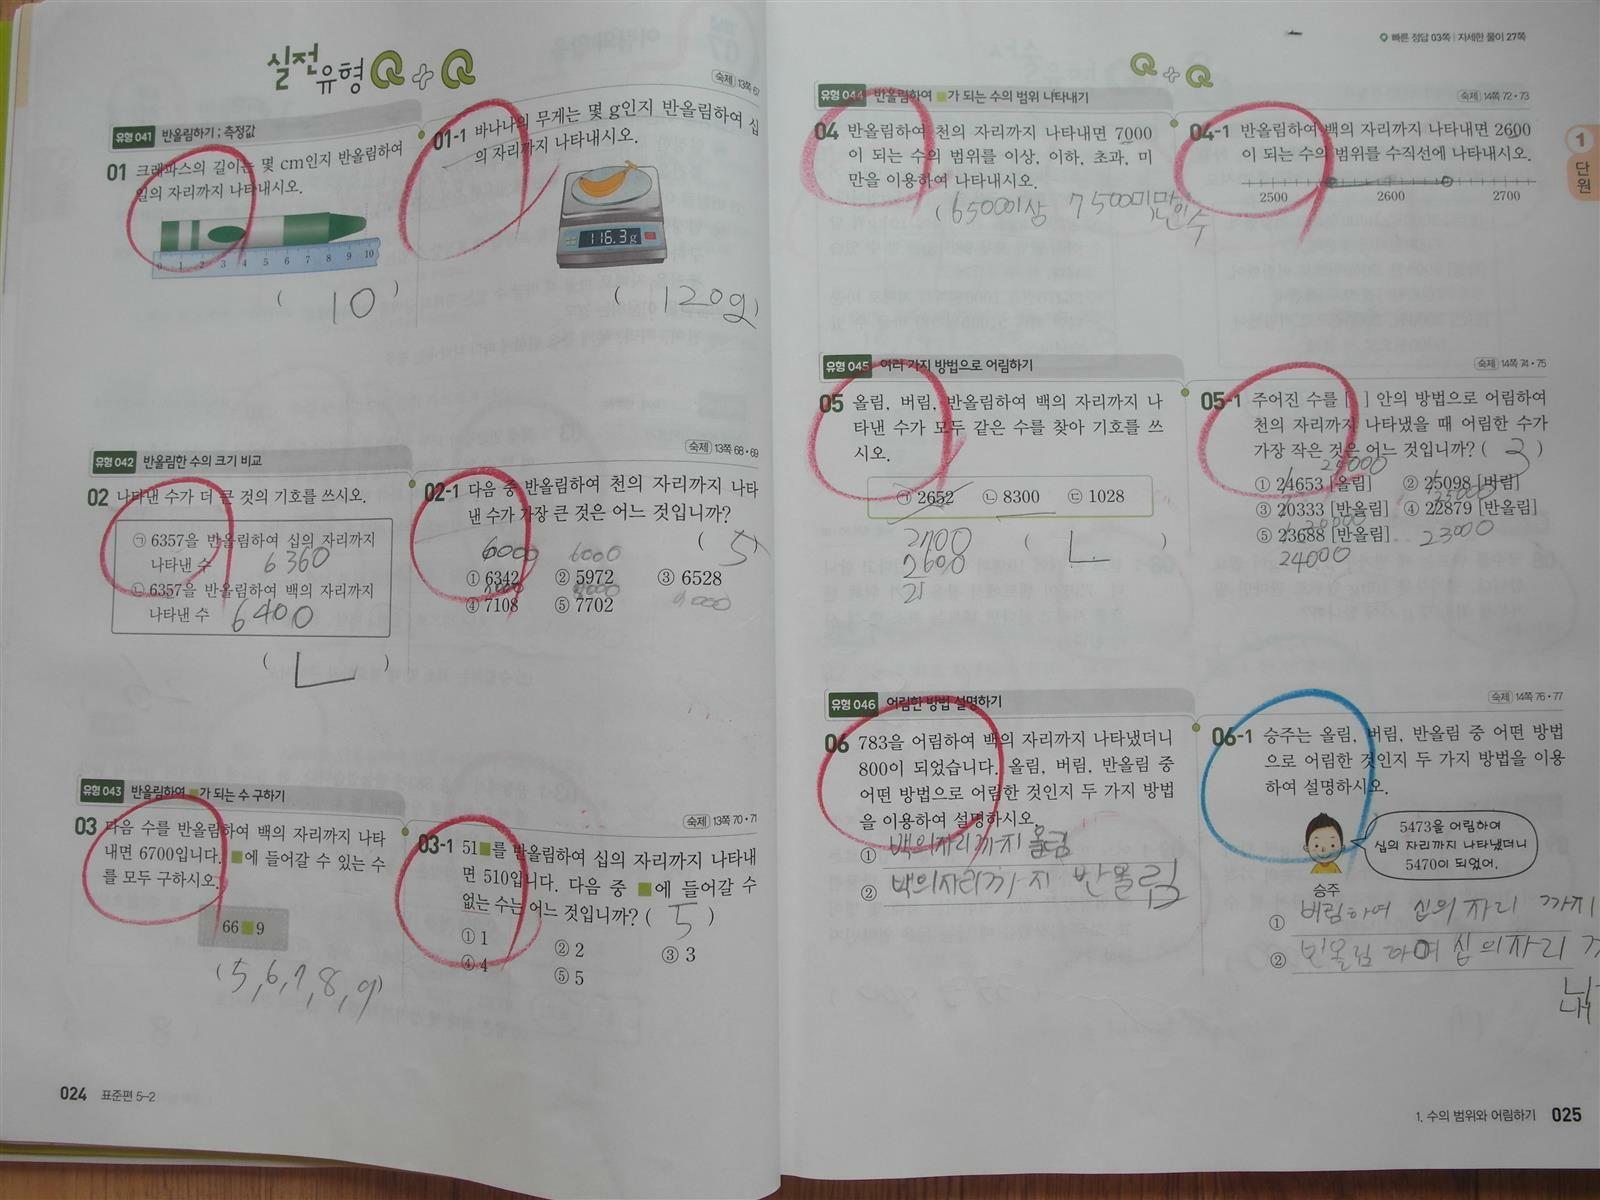 실전유형 Q+Q
유형 041 반올림하기 ; 측정값
숙제 13쪽 67
01 크레파스의 길이는 몇 cm인지 반올림하여
일의 자리까지 나타내시오.
0 1 2 3 4 5 6 7 8 9 10
( 10 )
01-1 바나나의 무게는 몇 g인지 반올림하여 십
의 자리까지 나타내시오.
116.3 g
( 120g )
유형 042 반올림한 수의 크기 비교
숙제 13쪽 68·69
02 나타낸 수가 더 큰 것의 기호를 쓰시오.
㉠ 6357을 반올림하여 십의 자리까지
나타낸 수 6360
㉡ 6357을 반올림하여 백의 자리까지
나타낸 수 6400
( ㄴ )
02-1 다음 중 반올림하여 천의 자리까지 나타
낸 수가 가장 큰 것은 어느 것입니까?
( 5 )
6000 6000
① 6342 ② 5972 ③ 6528
④ 7108 ⑤ 7702
유형 043 반올림하여 ■가 되는 수 구하기
숙제 13쪽 70·71
03 다음 수를 반올림하여 백의 자리까지 나타
내면 6700입니다. ■에 들어갈 수 있는 수
를 모두 구하시오.
66■9
(5,6,7,8,9)
03-1 51■를 반올림하여 십의 자리까지 나타내
면 510입니다. 다음 중 ■에 들어갈 수
없는 수는 어느 것입니까? ( 5 )
① 1 ② 2 ③ 3
④ 4 ⑤ 5
024 표준편 5-2
Q+Q
빠른 정답 03쪽 | 자세한 풀이 27쪽
1
단원
유형 044 반올림하여 ■가 되는 수의 범위 나타내기
숙제 14쪽 72·73
04 반올림하여 천의 자리까지 나타내면 7000
이 되는 수의 범위를 이상, 이하, 초과, 미
만을 이용하여 나타내시오.
(6500이상 7500미만인 수
04-1 반올림하여 백의 자리까지 나타내면 2600
이 되는 수의 범위를 수직선에 나타내시오.
2500 2600 2700
유형 045 여러 가지 방법으로 어림하기
숙제 14쪽 74·75
05 올림, 버림, 반올림하여 백의 자리까지 나
타낸 수가 모두 같은 수를 찾아 기호를 쓰
시오.
㉠ 2652 ㉡ 8300 ㉢ 1028
2700
2600
( ㄴ )
05-1 주어진 수를 [ ] 안의 방법으로 어림하여
천의 자리까지 나타냈을 때 어림한 수가
가장 작은 것은 어느 것입니까? ( 3 )
25000
① 24653 [올림] ② 25098 [버림]
25000
③ 20333 [반올림] ④ 22879 [반올림]
20000
⑤ 23688 [반올림] 23000
24000
유형 046 어림한 방법 설명하기
숙제 14쪽 76·77
06 783을 어림하여 백의 자리까지 나타냈더니
800이 되었습니다. 올림, 버림, 반올림 중
어떤 방법으로 어림한 것인지 두 가지 방법
을 이용하여 설명하시오.
① 백의자리까지 올림
② 백의자리까지 반올림
06-1 승주는 올림, 버림, 반올림 중 어떤 방법
으로 어림한 것인지 두 가지 방법을 이용
하여 설명하시오.
5473을 어림하여
십의 자리까지 나타냈더니
5470이 되었어.
승주
① 버림하여 십의 자리 까지
② 반올림 하여 십의자리
1. 수의 범위와 어림하기 025